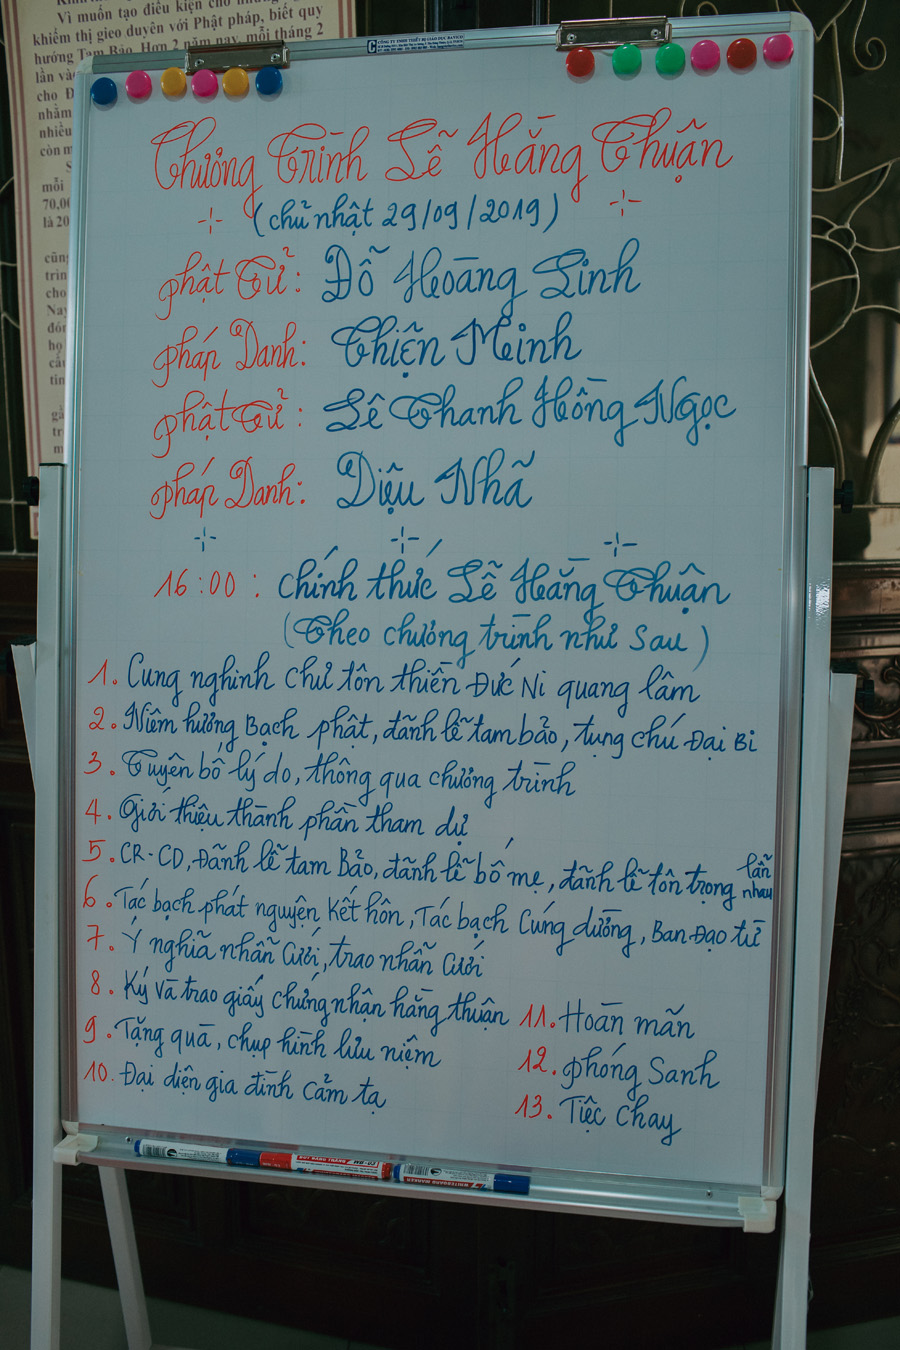 Vì muốn tạo điều kiện cho
khiếm thị gieo duyên với Phật pháp, biết quy
hướng Tam Bảo. Hơn 2 năm nay, mỗi tháng 2
lần
cho
nhằm
nhiều
còn
mỗi
70,00
là 20
cũng
trìn
cho
Nay
đón
họ
tin
CÔNG TY TNHH THIẾT BỊ GIÁO DỤC BAVICO
Chương Trình Lễ Hằng Thuận
(chủ nhật 29/09/2019)
phật Tử: Đỗ Hoàng Linh
pháp Danh: Thiện Minh
phật Tử: Lê Thanh Hồng Ngọc
pháp Danh: Diệu Nhã
16:00: chính thức Lễ Hằng Thuận
(Theo chương trình như sau)
1. Cung nghinh chư tôn thiền Đức Ni quang lâm
2. Niêm hương Bạch phật, đãnh lễ tam bảo, tụng chú Đại Bi
3. Tuyên bố lý do, thông qua chương trình
4. Giới thiệu thành phần tham dự
5. CR-CD, Đãnh lễ tam Bảo, đãnh lễ bố mẹ, đãnh lễ tôn trọng lẫn nhau
6. Tác bạch phát nguyện Kết hôn, Tác bạch Cúng dường, Ban Đạo từ
7. Ý nghĩa nhẫn Cưới, trao nhẫn Cưới
8. Ký và trao giấy chứng nhận hằng thuận
9. Tặng quà, chụp hình lưu niệm
10. Đại diện gia đình Cảm tạ
11. Hoàn mãn
12. phóng Sanh
13. Tiệc chay